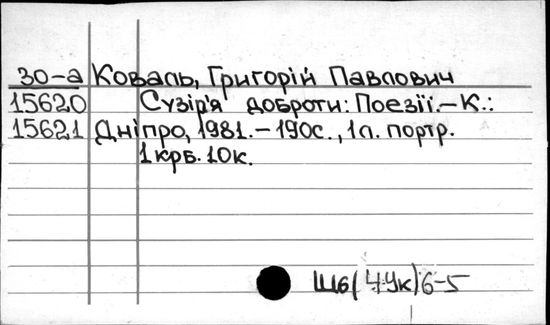 30-а Коваль, Григорій Павлович
15620 Сузір'я доброти: Поезії.–К.:
15621 Дніпро, 1981.–190с., 1л. портр.
1крб. 10к.
Ш6(4Ук)6-5